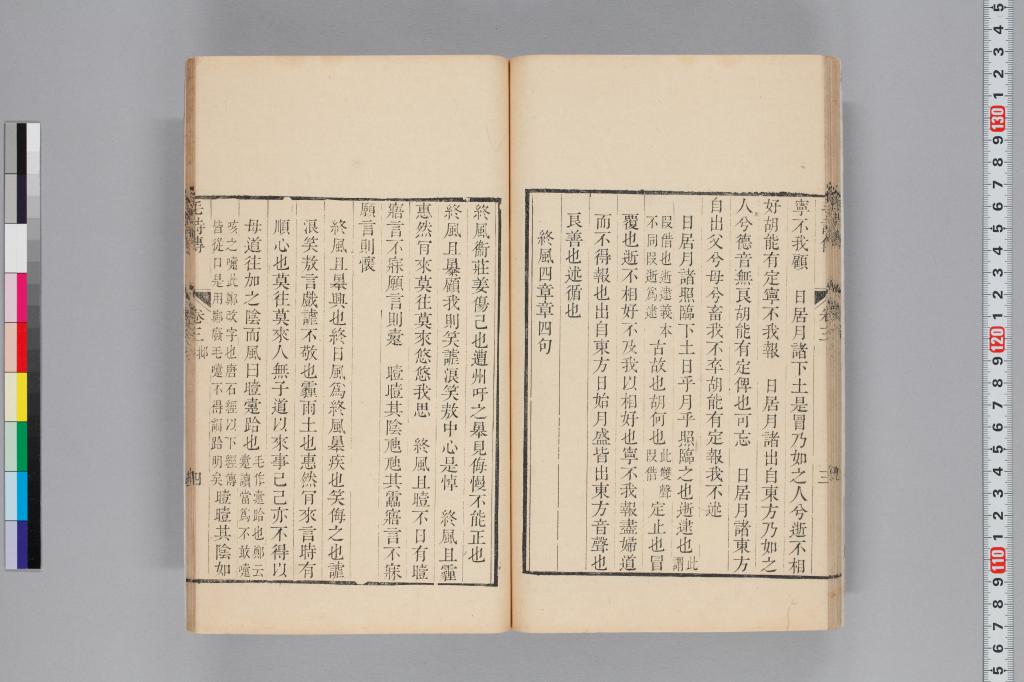 寧不我顧　日居月諸下土是冒乃如之人兮逝不相
好胡能有定寧不我報　日居月諸出自東方乃如之
人兮德音無良胡能有定俾也可忘　日居月諸東方
自出父兮母兮畜我不卒胡能有定報我不述
日居月諸照臨下土日乎月乎照臨之也逝逮也此謂
叚借也逝逮義本
不同叚逝爲逮
古故也胡何也此雙聲
叚借
定止也冒
覆也逝不相好不及我以相好也寧不我報盡婦道
而不得報也出自東方日始月盛皆出東方音聲也
良善也述循也
終風四章章四句
三
終風衞莊姜傷己也遭州吁之暴見侮慢不能正也
終風且暴顧我則笑謔浪笑敖中心是悼　終風且霾
惠然肎來莫往莫來悠悠我思　終風且曀不日有曀
寤言不寐願言則疐　曀曀其陰虺虺其靁寤言不寐
願言則懷
終風且暴興也終日風爲終風暴疾也笑侮之也謔
浪笑敖言戲謔不敬也霾雨土也惠然肎來言時有
順心也莫往莫來人無子道以來事己己亦不得以
母道往加之陰而風曰曀疐跲也毛作疐跲也鄭云
疐讀當爲不敢嚏
咳之嚏此鄭改字也唐石經以下經傳
皆從口是用鄭廢毛嚏不得訓跲明矣
曀曀其陰如
毛詩傳
卷三
邶
四